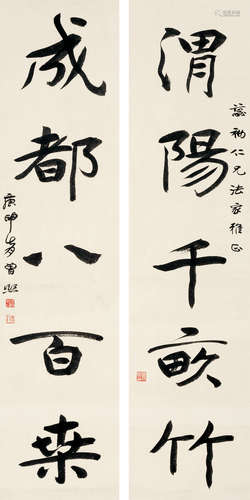 渭陽千畝竹
仁兄法家雅正
成都八百桒
庚申 曾熙